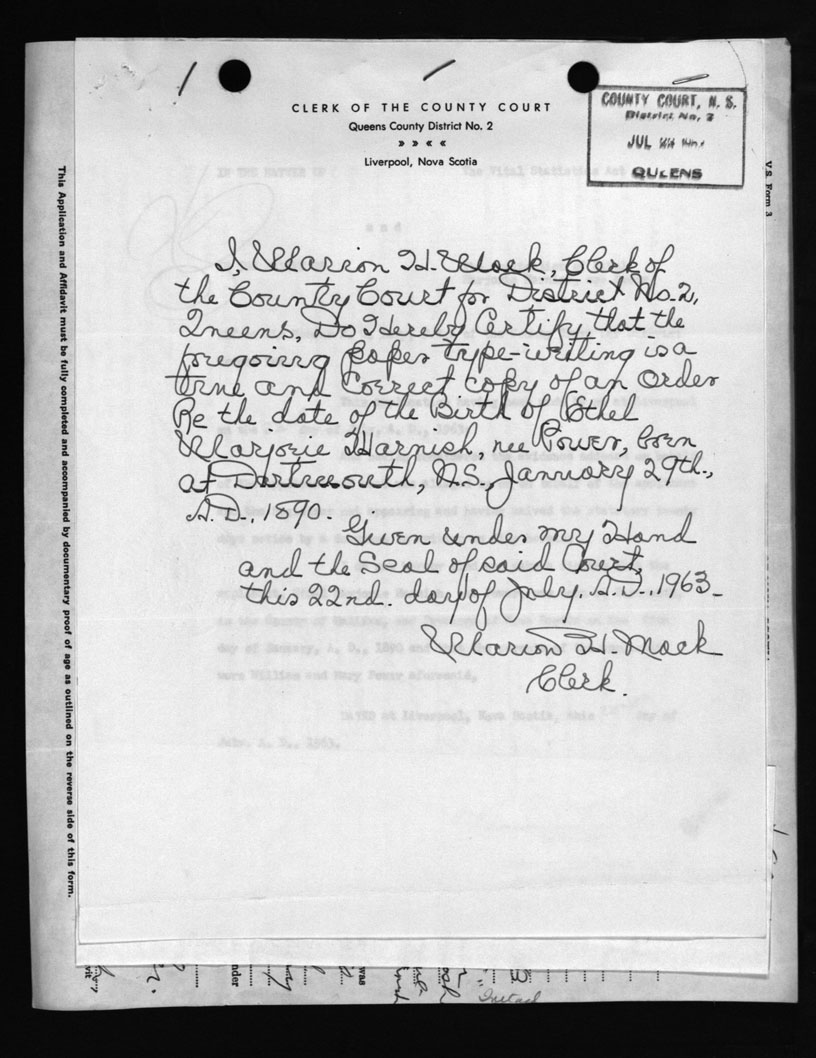 CLERK OF THE COUNTY COURT
Queens County District No. 2
» » « «
Liverpool, Nova Scotia
COUNTY COURT, N. S.
District No. 2
JUL
QUEENS
V.S. Form 3
This Application and Affidavit must be fully completed and accompanied by documentary proof of age as outlined on the reverse side of this form.
IN THE MATTER OF The Vital Statistics Act
and
I, Marion H. Mack, Clerk of
the County Court for District No. 2,
Queens, Do Hereby Certify, that the
foregoing paper type-writing is a
True and Correct copy of an Order
Re the date of the Birth of Ethel
Marjorie Harnish, nee Power, born
at Dartmouth, N.S., January 29th.,
A.D., 1890.
Given under my Hand
and the Seal of said Court,
this 22nd. day of July. A.D., 1963-
Marion H. Mack
Clerk.
day of January, A. D., 1890 and
were William and Mary Power aforesaid,
DATED at Liverpool, Nova Scotia, this day of
July, A. D., 1963.
was
nder
vit